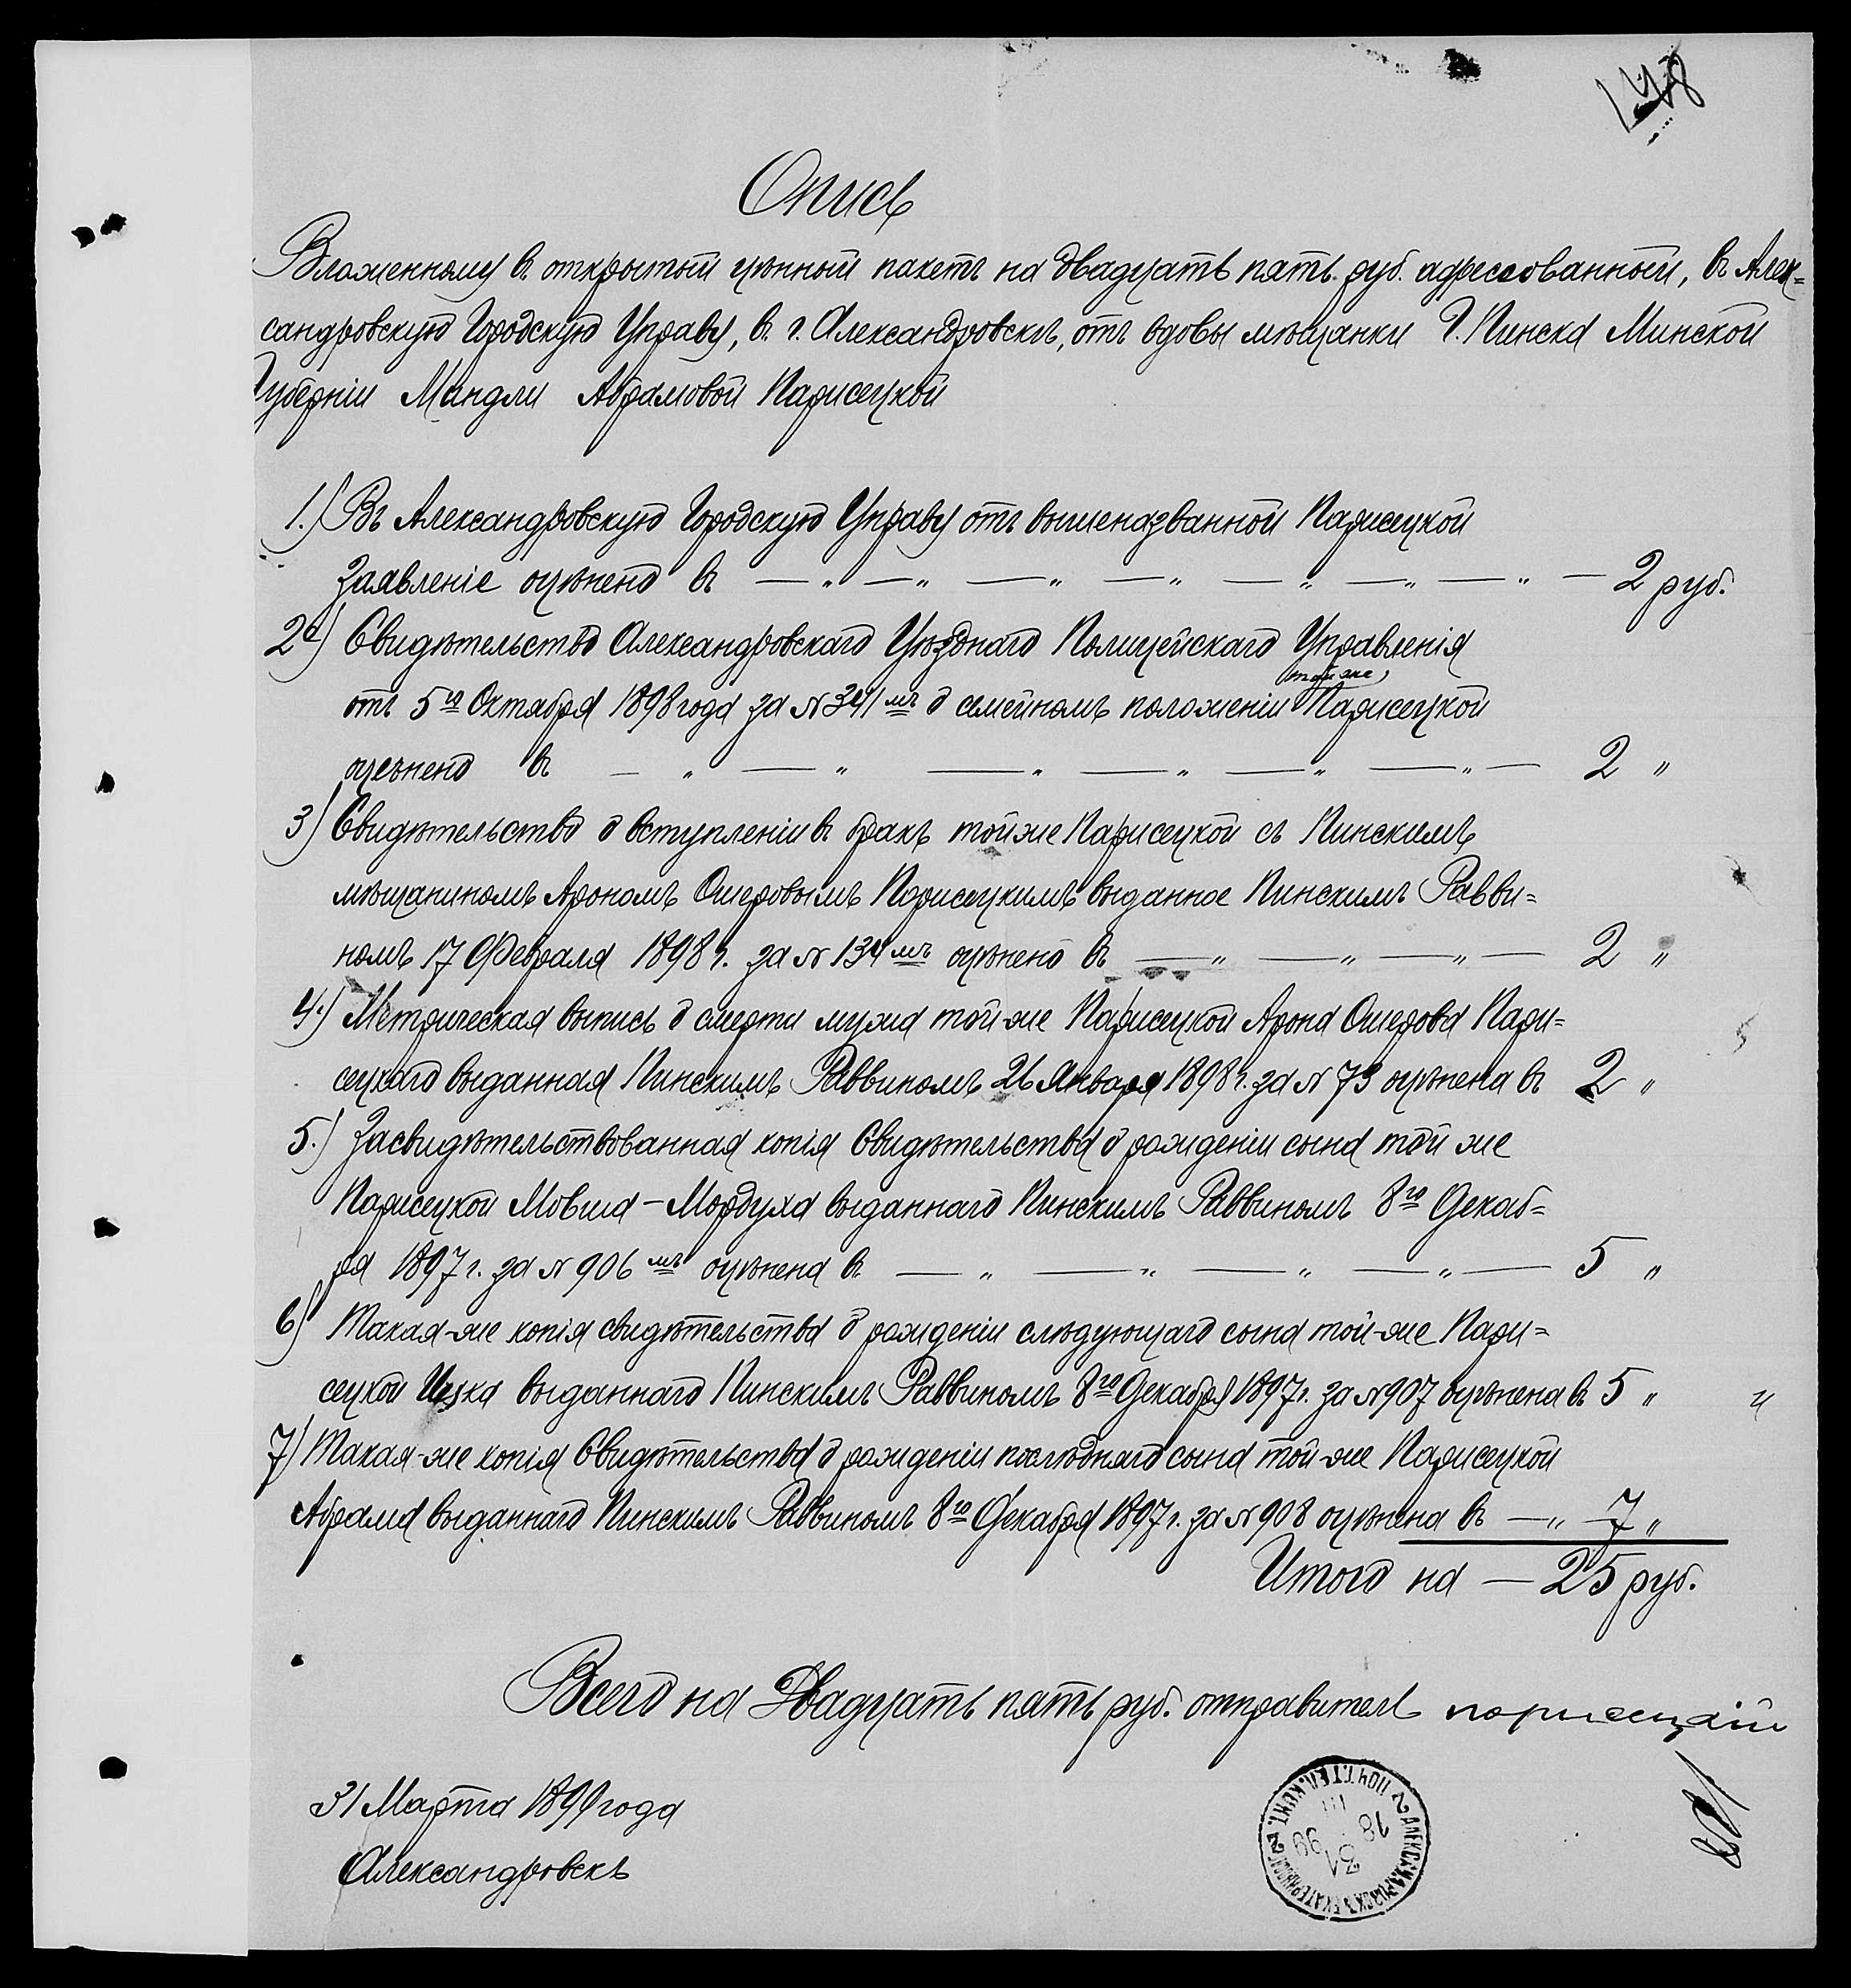 148
Опись
Вложенному въ открытый цѣнный пакетъ на двадцать пять руб. адресованный, въ Алек=
сандровскую Городскую Управу, въ г. Александровскъ, отъ вдовы мѣщанки Г. Пинска Минской
Губерніи Миндли Абрамовой Парисецкой
1.) Въ Александровскую Городскую Управу отъ вышеназванной Парисецкой
Заявленіе оцѣнено въ — „ — „ — „ — „ — „ — „ — „ — 2 руб.
2) Свидѣтельство Александровскаго Уѣзднаго Полицейскаго Управленія
той же
отъ 5го Октября 1898 года за № 341мъ о семейномъ положеніи Парисецкой
оцѣнено въ — „ — „ — „ — „ — „ — „ — 2 „
3) Свидѣтельство о вступленіи въ бракъ той же Парисецкой съ Пинскимъ
мѣщаниномъ Арономъ Ошеровымъ Парисецкимъ выданное Пинскимъ Равви=
номъ 17 Февраля 1898 г. за № 134мъ оцѣнено въ — „ — „ — „ — 2 „
4.) Метрическая выпись о смерти мужа той-же Парисецкой Арона Ошерова Пари=
сецкаго выданная Пинскимъ Раввиномъ 26 Января 1898 г. за № 73 оцѣнена въ 2 „
5.) Засвидѣтельствованная копія Свидѣтельства о рожденіи сына той же
Парисецкой Мовша-Мордуха выданнаго Пинскимъ Раввиномъ 8го Декаб=
ря 1897 г. за № 906мъ оцѣнена въ — „ — „ — „ — „ — 5 „
6) Такая-же копія свидѣтельства о рожденіи слѣдующаго сына той-же Пари=
сецкой Ицка выданнаго Пинскимъ Раввиномъ 8го Декабря 1897 г. за № 907 оцѣнена въ 5 „
7) Такая-же копія Свидѣтельства о рожденіи послѣдняго сына той-же Парисецкой
Абрама выданнаго Пинскимъ Раввиномъ 8го Декабря 1897 г. за № 908 оцѣнена въ — „ — 7 „
Итого на — 25 руб.
Всего на Двадцать пять руб. отправитель парисецкій
31 Марта 1899 года
Александровскъ
АЛЕКСАНДРОВСКЪ ЕКАТЕРИНОСЛ. 2 ПОЧТ.ТЕЛ.КОНТ. 2
31
18 99
III